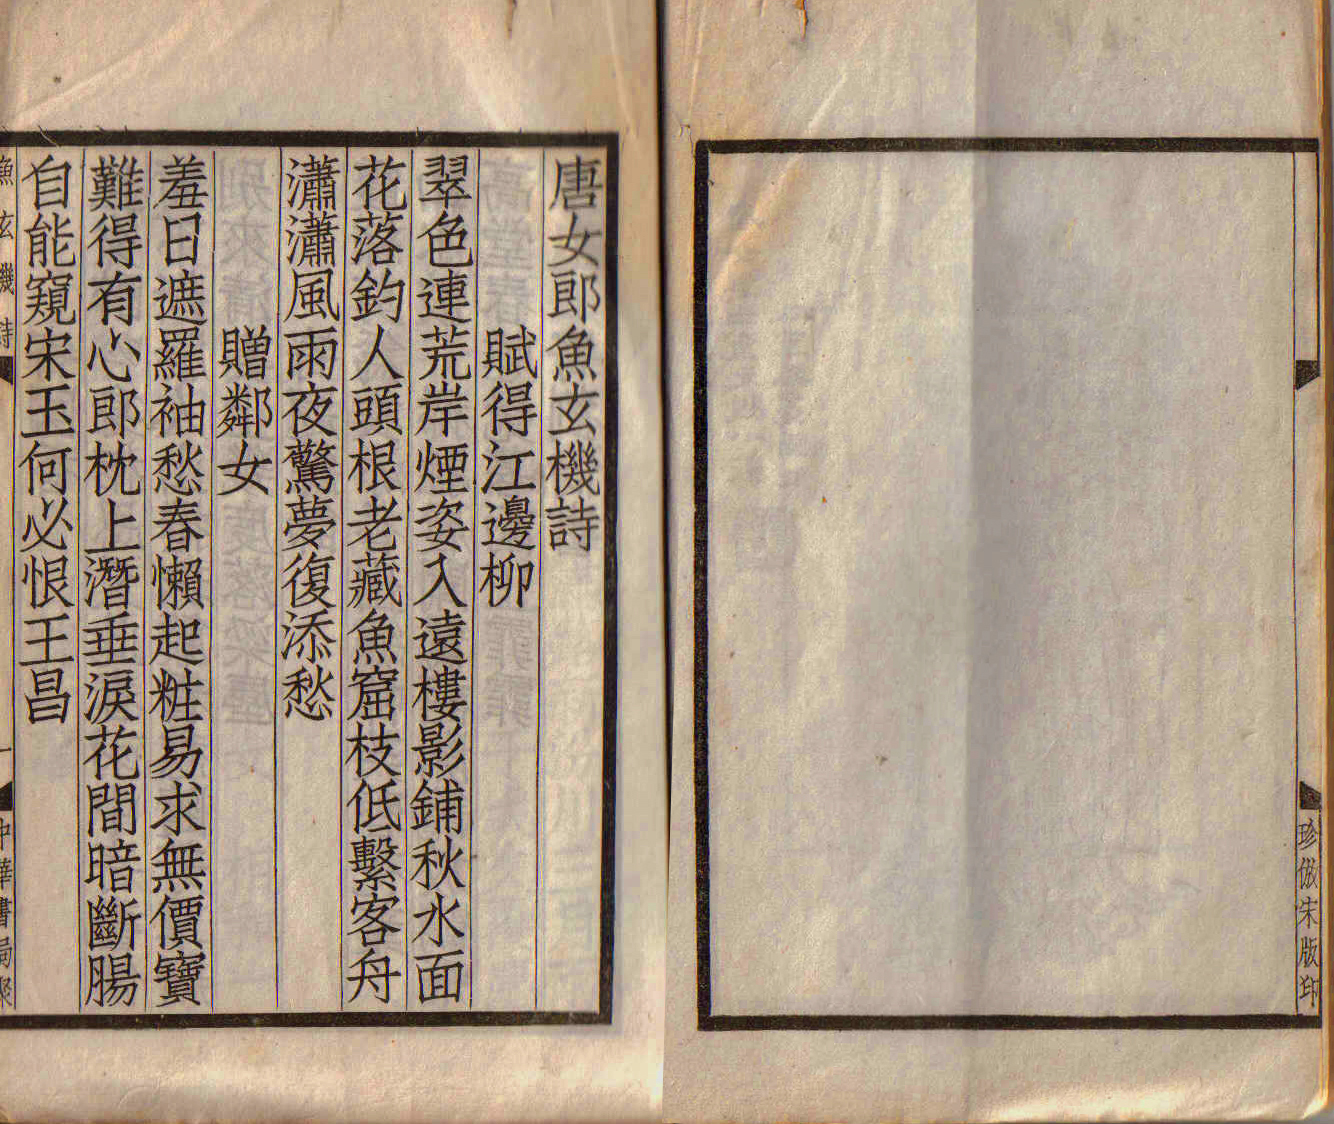 珍倣宋版印
唐女郎魚玄機詩
賦得江邊柳
翠色連荒岸煙姿入遠樓影鋪秋水面
花落釣人頭根老藏魚窟枝低繫客舟
瀟瀟風雨夜驚夢復添愁
贈鄰女
羞日遮羅袖愁春懶起粧易求無價寶
難得有心郎枕上潛垂淚花間暗斷腸
自能窺宋玉何必恨王昌
魚玄機詩
一
中華書局聚